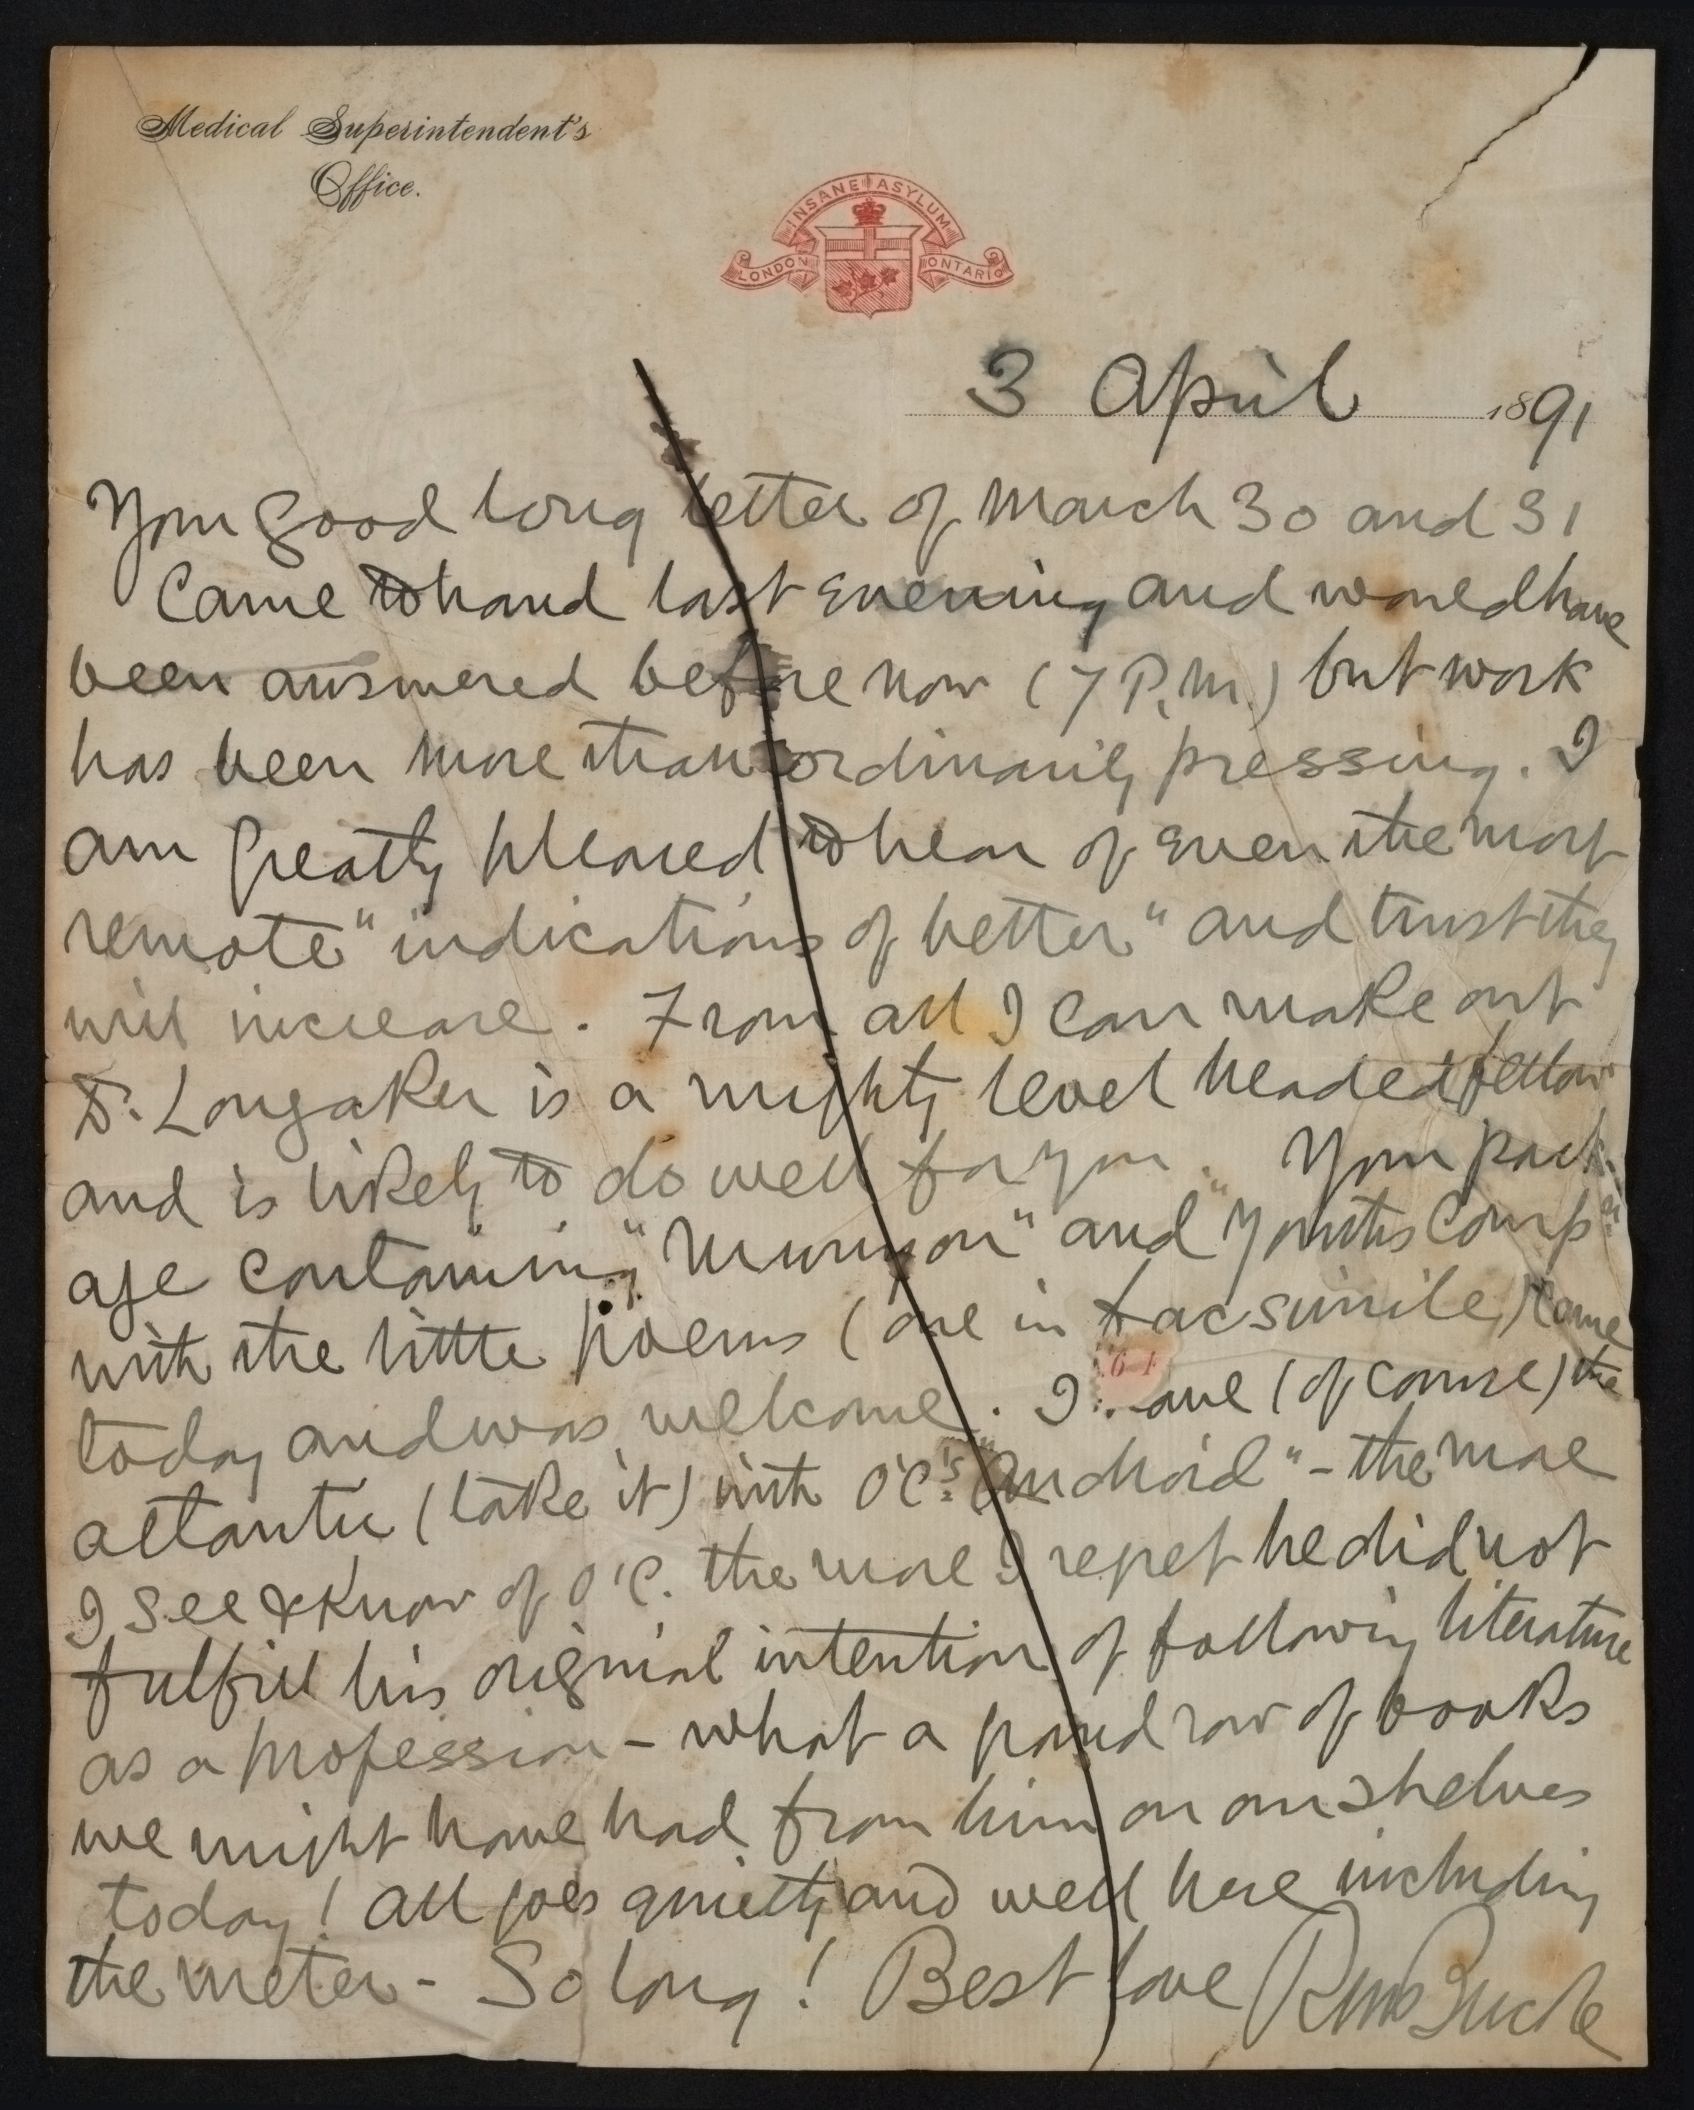 Medical Superintendent's
Office.
INSANE ASYLUM
LONDON ONTARIO
3 April 1891
Your good long letter of March 30 and 31
Came to hand last evening and would have
been answered before now (7 P.M.) but work
has been more than ordinarily pressing. I
am greatly pleased to hear of even the most
remote "indications of better" and trust they
will increase. From all I can make out
Dr. Longaker is a mighty level headed fellow
and is likely to do well for you. Your pack-
age containing "Munyon" and "Youths Comp.n"
with the little poems (one in facsimile) came
today and was welcome. I have (of course) the
64
atlantic (take it) with O'C's "Android" - the more
I see & know of O'C. the more I regret he did not
fulfill his original intention of following literature
as a profession - what a proud row of books
we might have had from him on our shelves
today! All goes quietly and well here including
the meter - So long! Best love RM Bucke